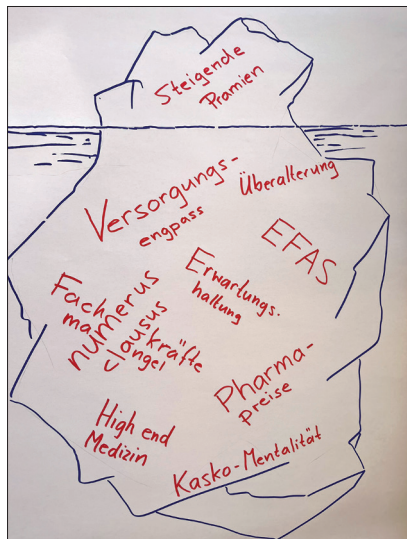 Steigende
Prämien
Versorgungs-
engpass
Überalterung
EFAS
Erwartungs-
haltung
Fachkräfte
mangel
numerus
clausus
Pharma-
preise
High end
Medizin
Kasko-Mentalität